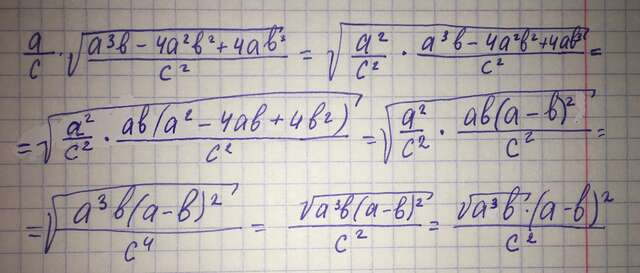 a/c · √((a³b − 4a²b² + 4ab³)/c²) = √(a²/c² · (a³b − 4a²b² + 4ab³)/c²) =
= √(a²/c² · ab(a² − 4ab + 4b²)/c²) = √(a²/c² · ab(a − b)²/c²) =
= √(a³b(a − b)²/c⁴) = √(a³b(a − b)²)/c² = √(a³b) · (a − b)²/c²